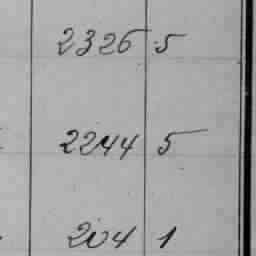 2326 5
2244 5
204 1